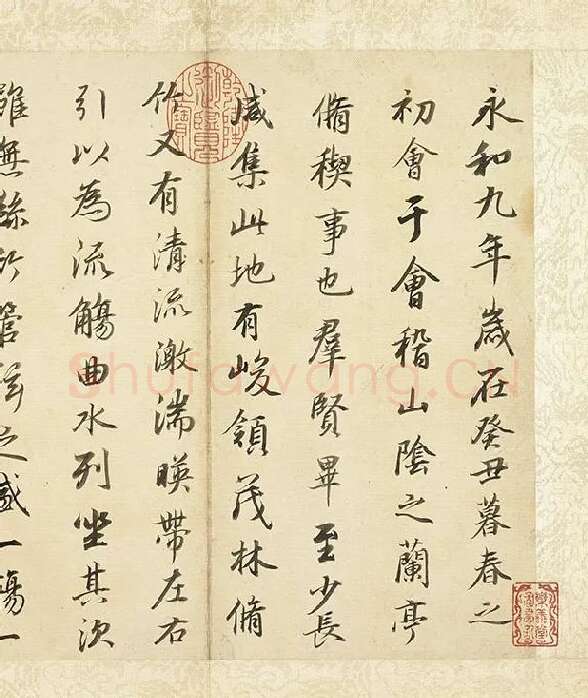 永和九年歲在癸丑暮春之
初會于會稽山陰之蘭亭
脩稧事也羣賢畢至少長
咸集此地有峻領茂林脩
竹又有清流激湍暎帶左右
引以為流觴曲水列坐其次
雖無絲竹管弦之盛一觴一
乾隆御覽之寶
Shufawang.CN